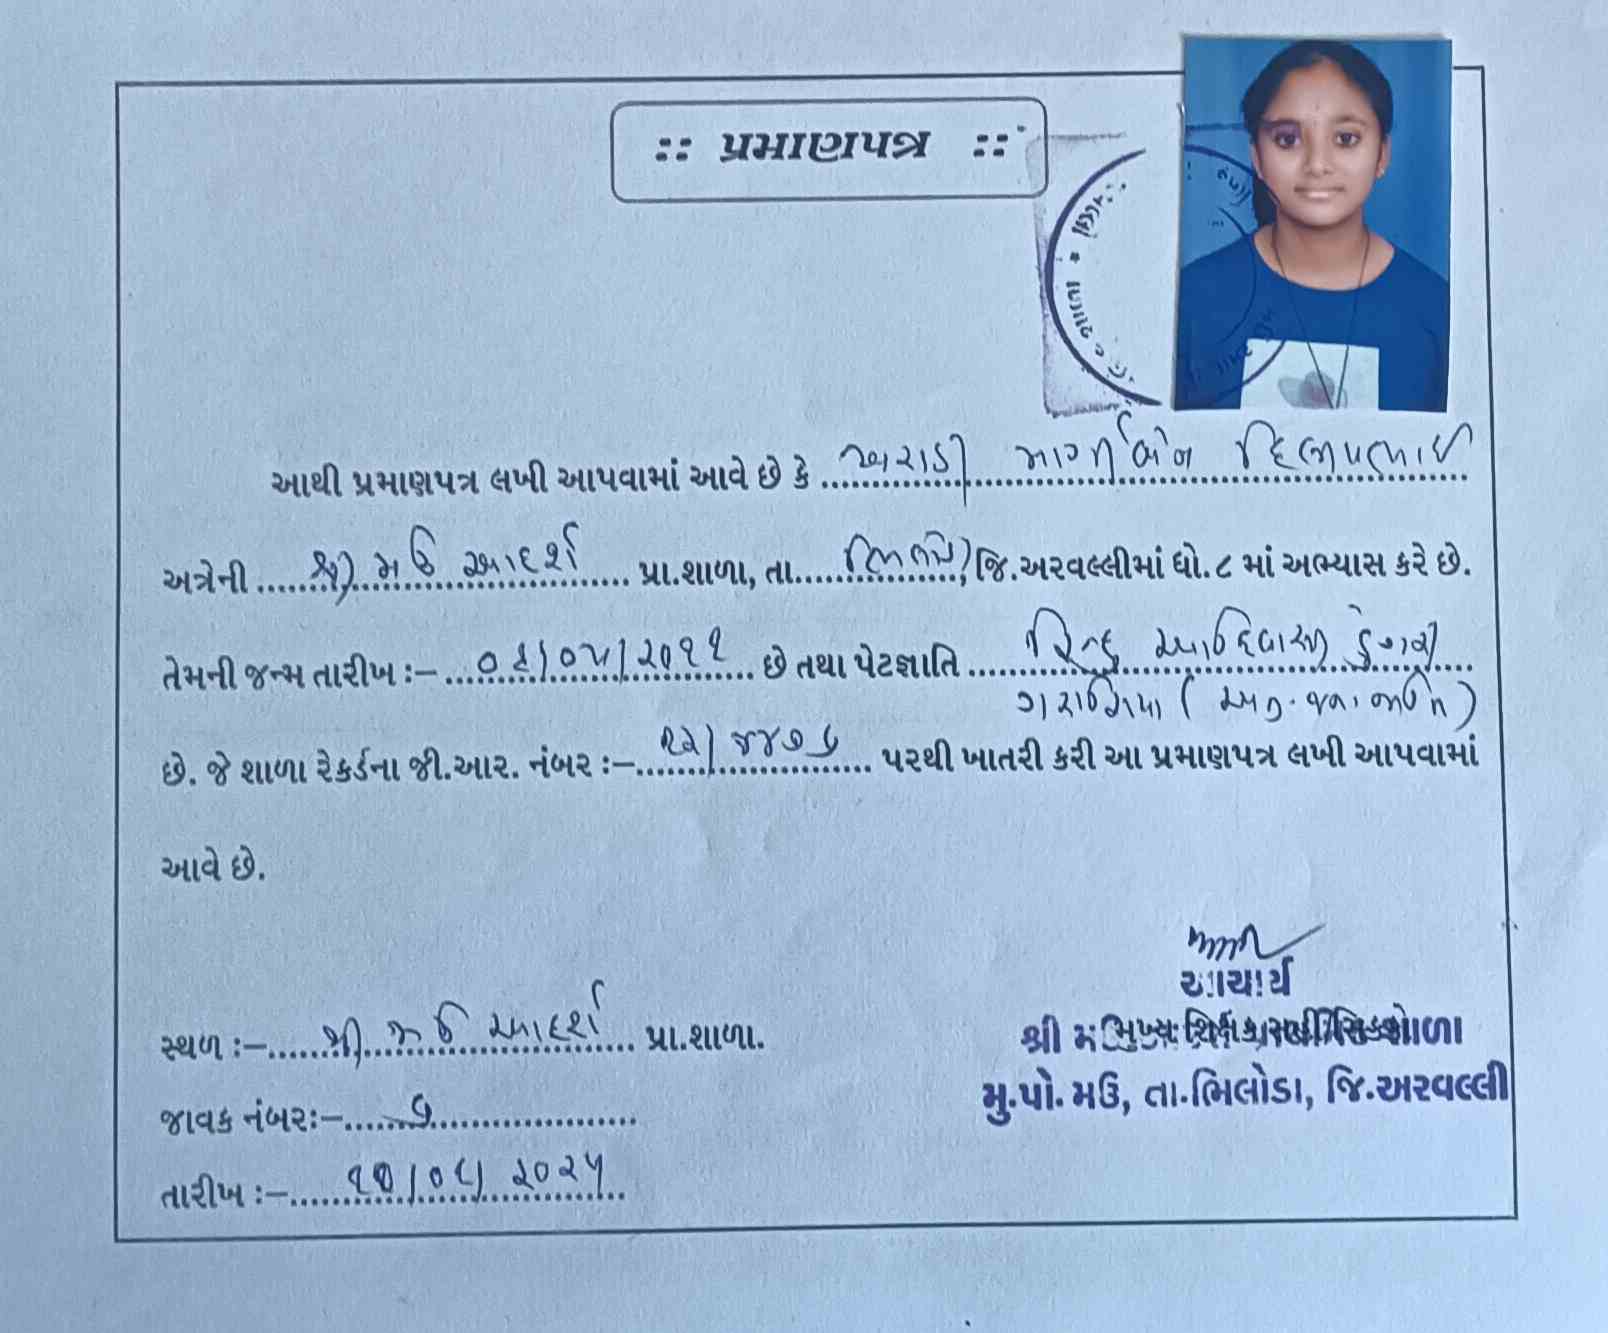 :: પ્રમાણપત્ર ::
આથી પ્રમાણપત્ર લખી આપવામાં આવે છે કે ખરાડી માર્ગીબેન દિલીપભાઈ
અત્રેની શ્રી મઉ આદર્શ પ્રા.શાળા, તા. ભિલોડા, જિ.અરવલ્લીમાં ધો.૮ માં અભ્યાસ કરે છે.
તેમની જન્મ તારીખ :- ૦૨/૦૫/૨૦૧૧ છે તથા પેટાજ્ઞાતિ હિન્દુ આદિવાસી ડુંગરી
ગરાસિયા ( અનુ. જન. જાતિ )
છે. જે શાળા રેકર્ડના જી.આર. નંબર :- પરથી ખાતરી કરી આ પ્રમાણપત્ર લખી આપવામાં
આવે છે.
આચાર્ય
સ્થળ :- શ્રી મઉ આદર્શ પ્રા.શાળા.
શ્રી મુખ્ય શિક્ષક શાળા
મુ.પો. મઉ, તા.ભિલોડા, જિ.અરવલ્લી
જાવક નંબર:-
તારીખ :- ૨૦૨૫